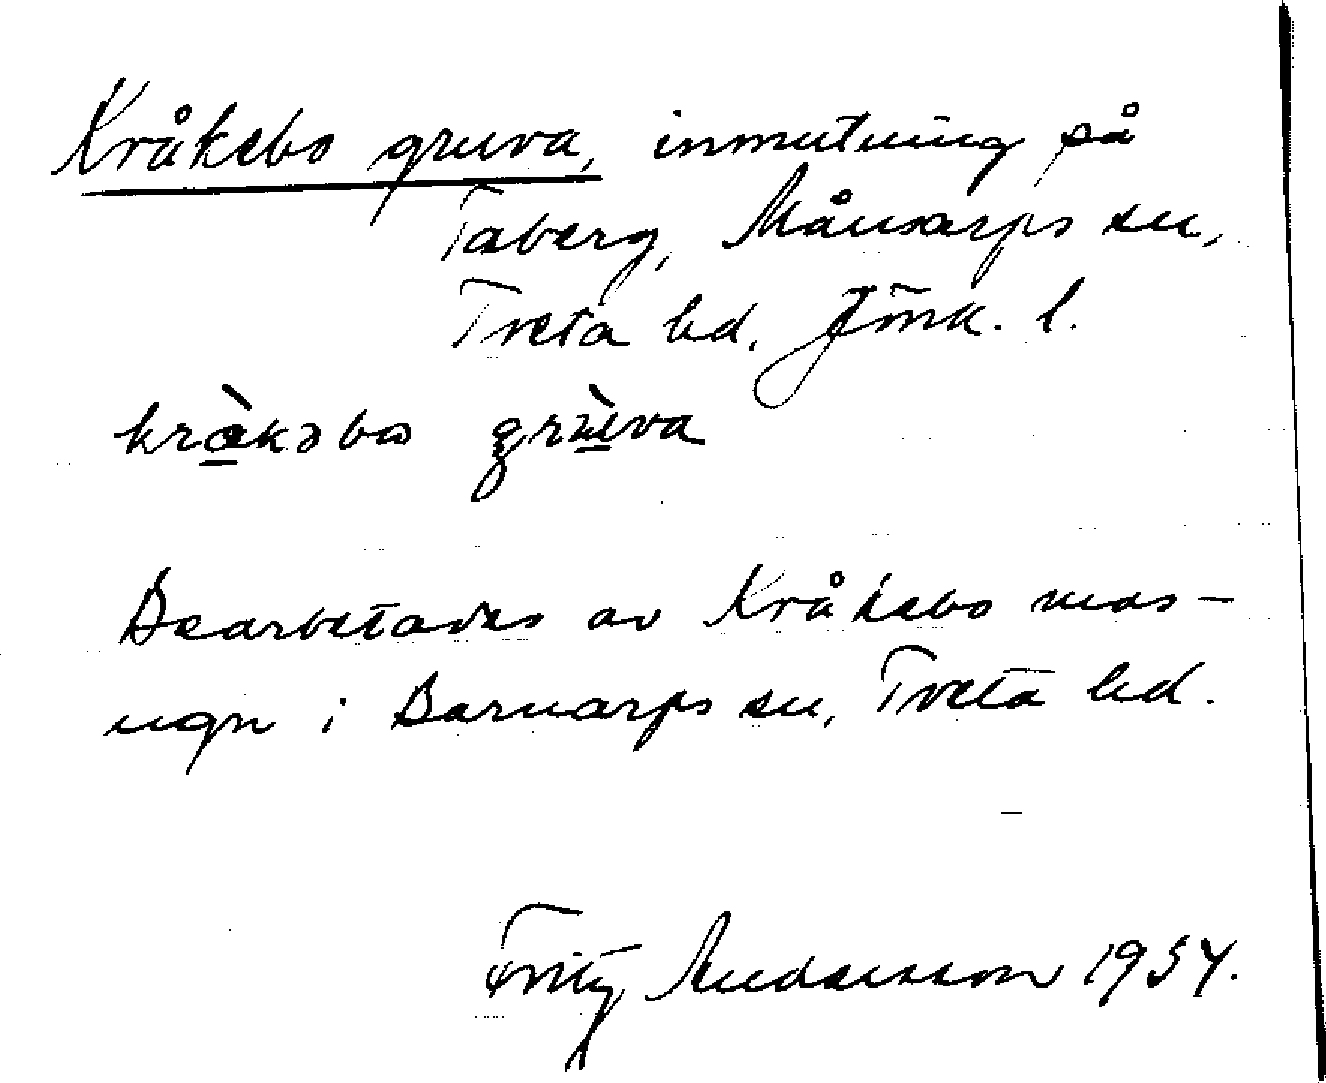 Kråkebo gruva, inmutning på
Taberg, Månsarps sn,
Tveta hd, Jönk. l.
krå̀kəbo grù̱va
Bearbetades av Kråkebo mas-
ugn i Barnarps sn, Tveta hd.
Fritz Andersson 1954.